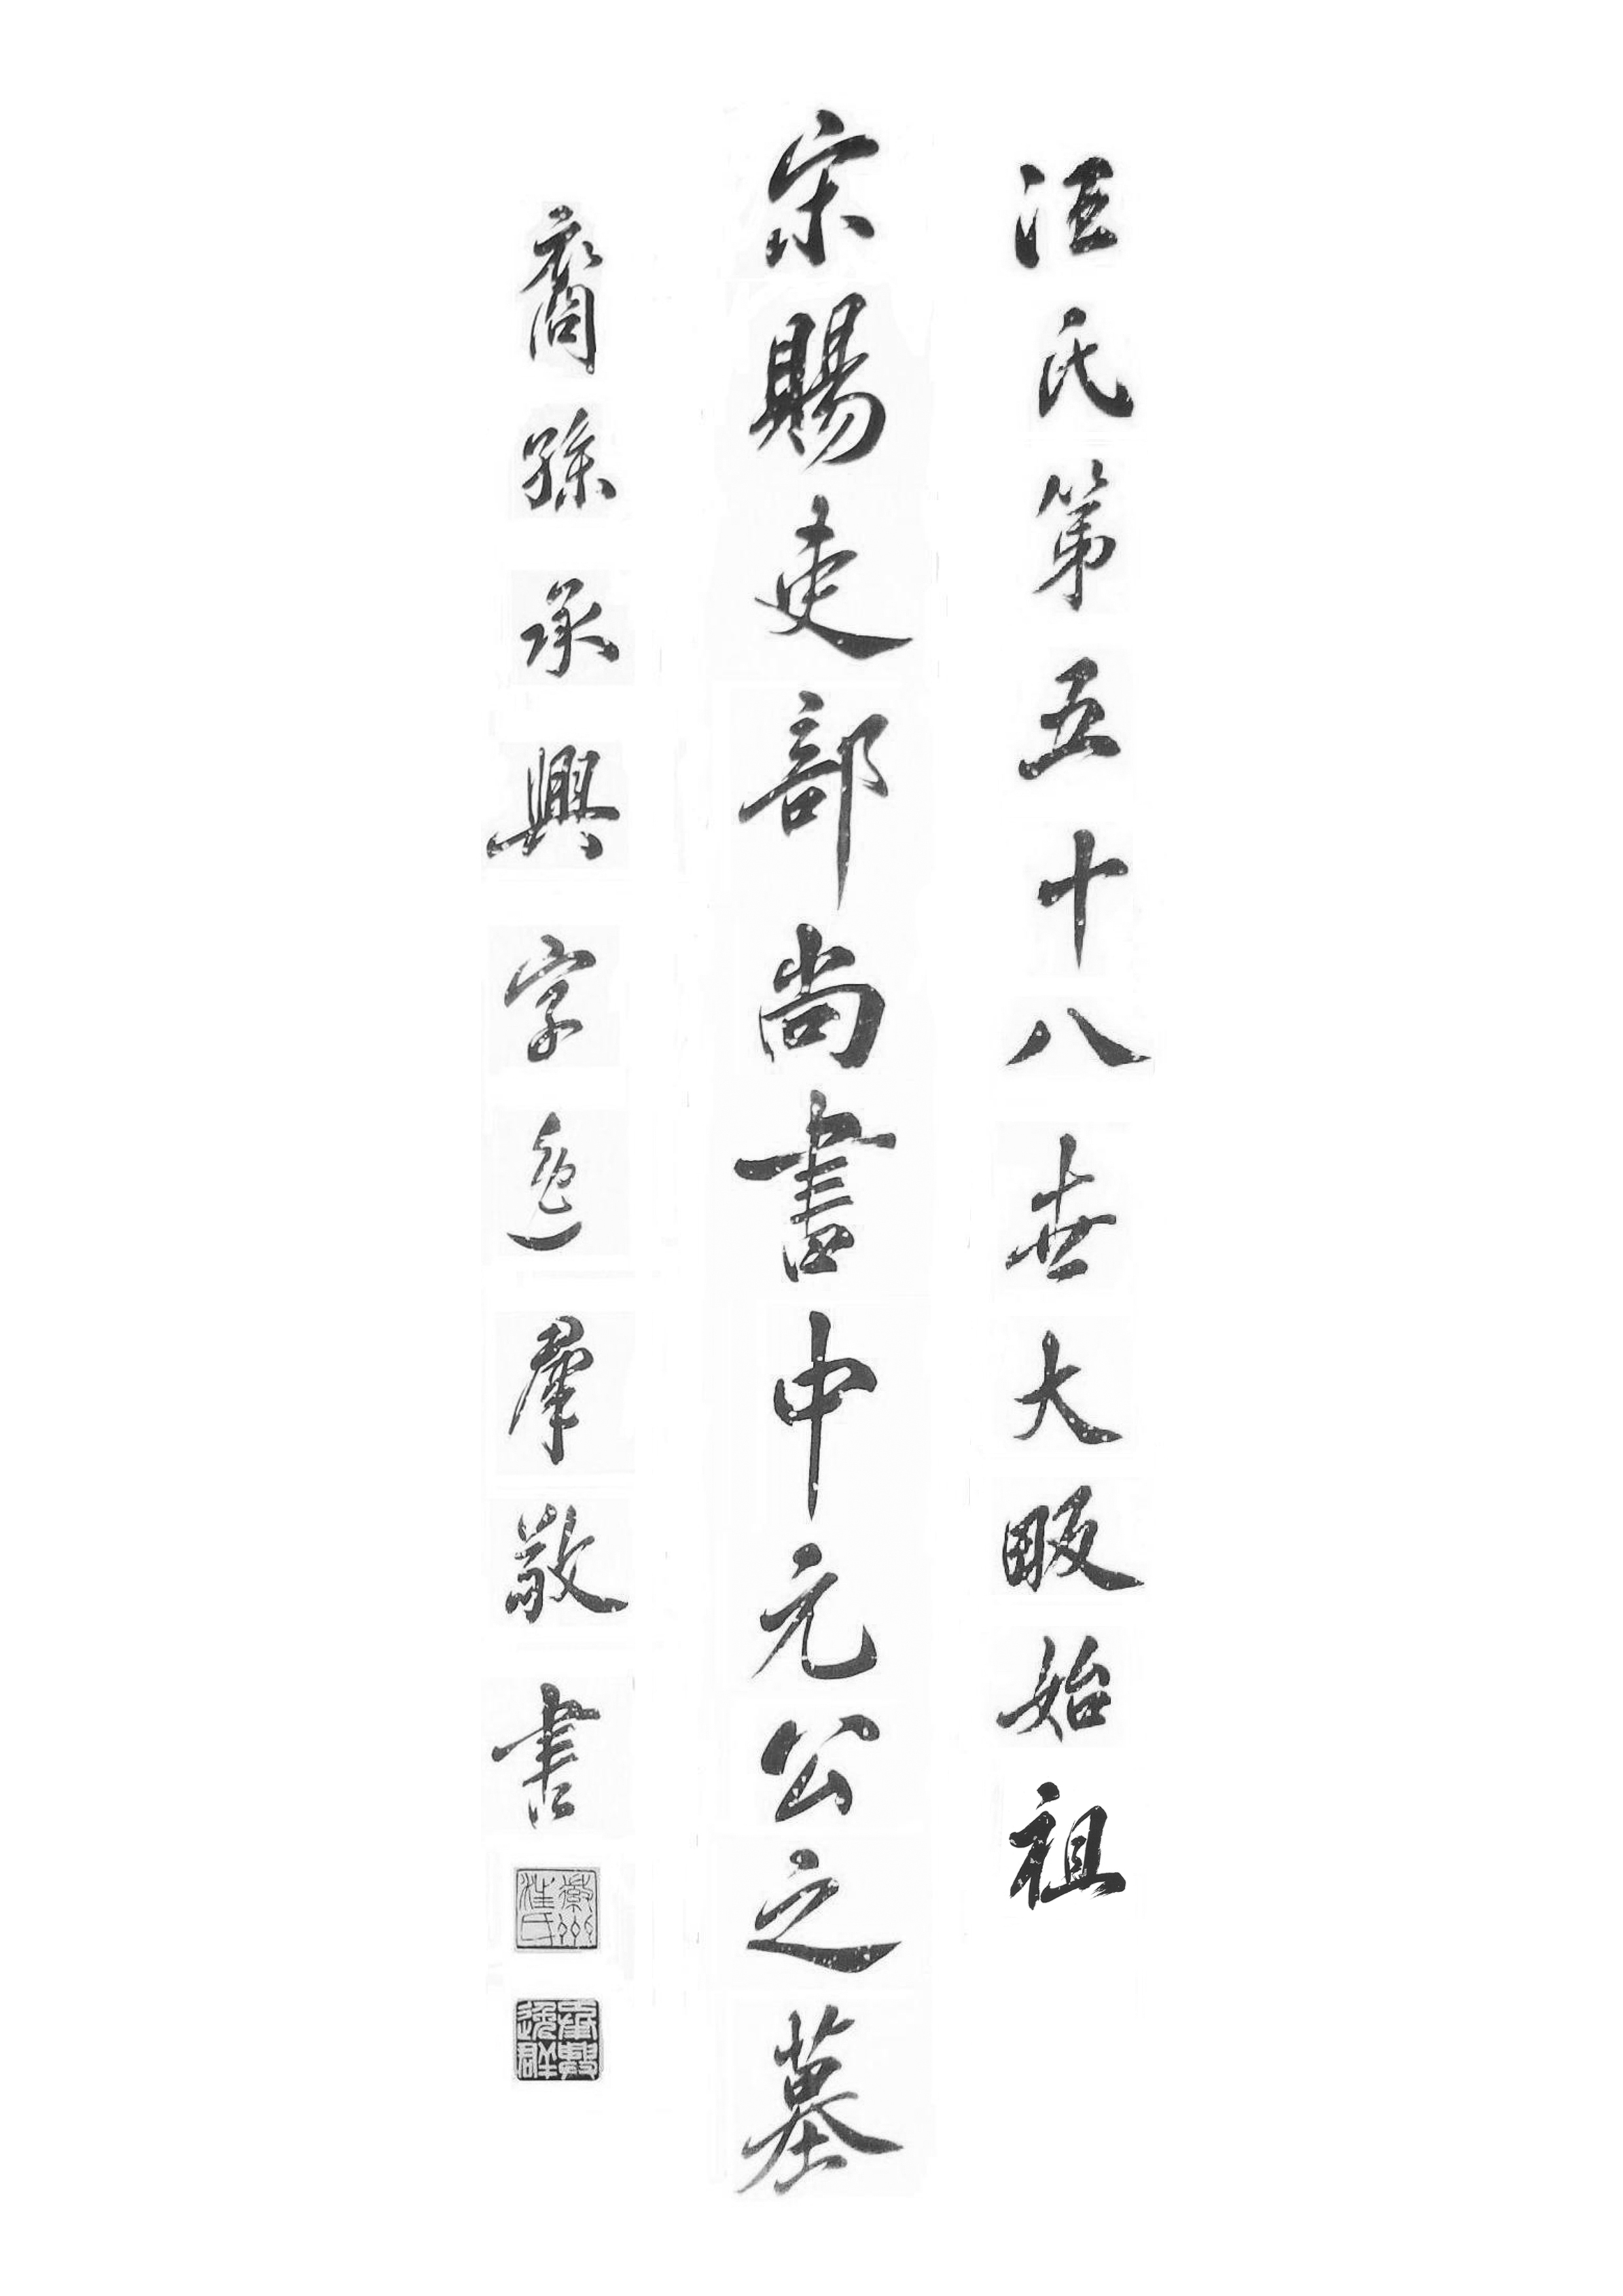 汪氏第五十八世大畈始祖
宋賜吏部尚書中元公之墓
裔孫承興字逸群敬書
徽州汪氏